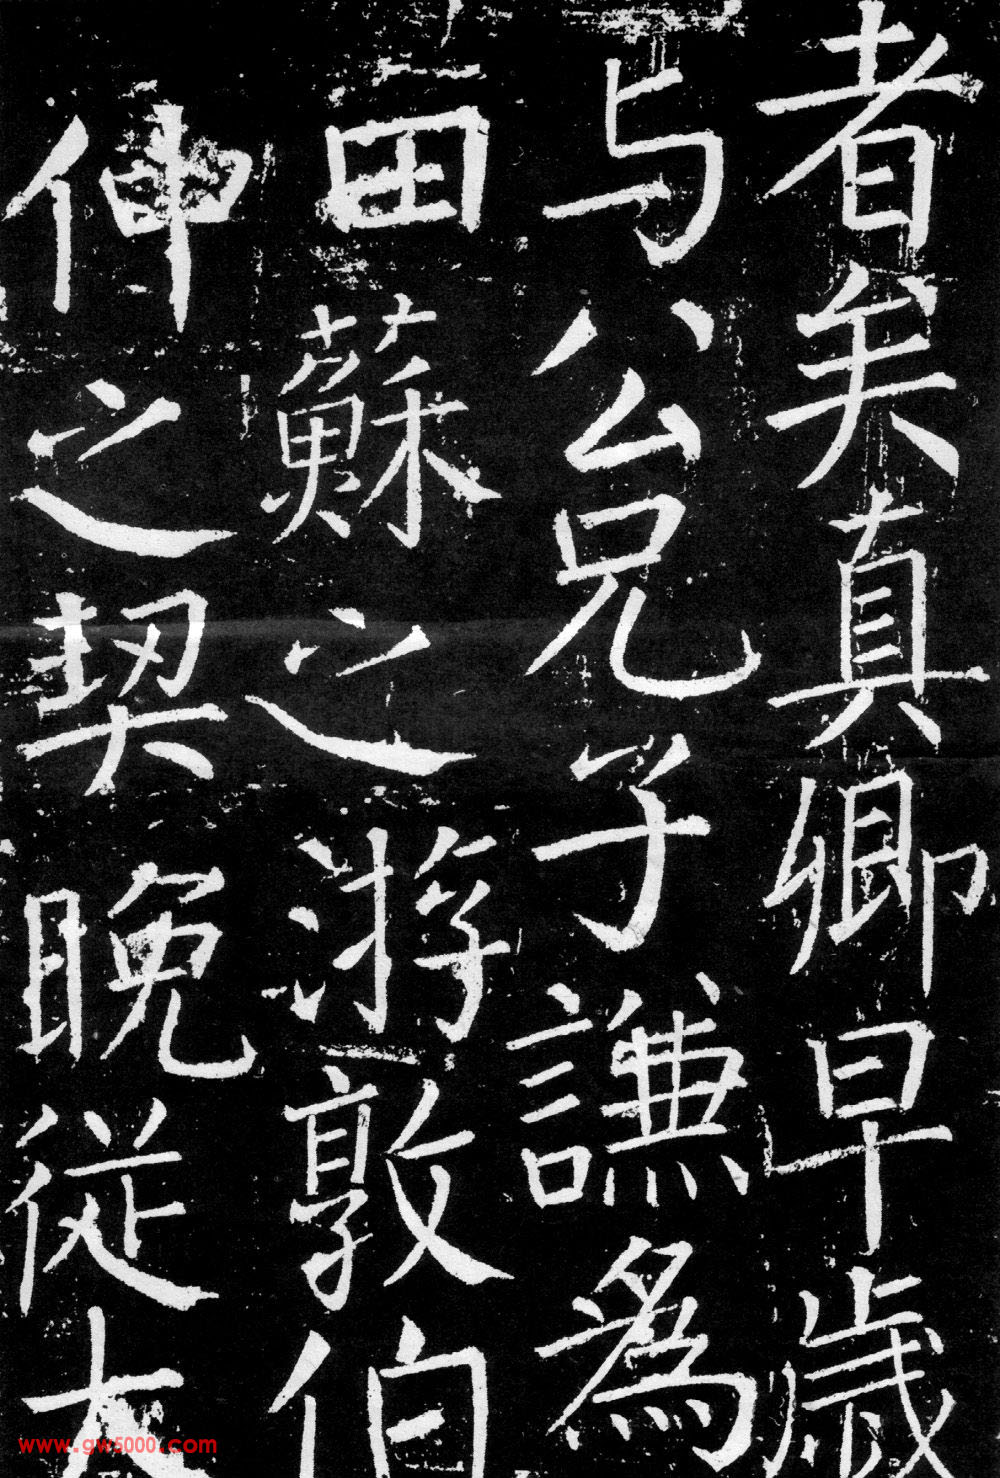 者矣真卿早歲
与公兄子謙為
田蘇之游敦伯
仲之契晚從大
www.gw5000.com